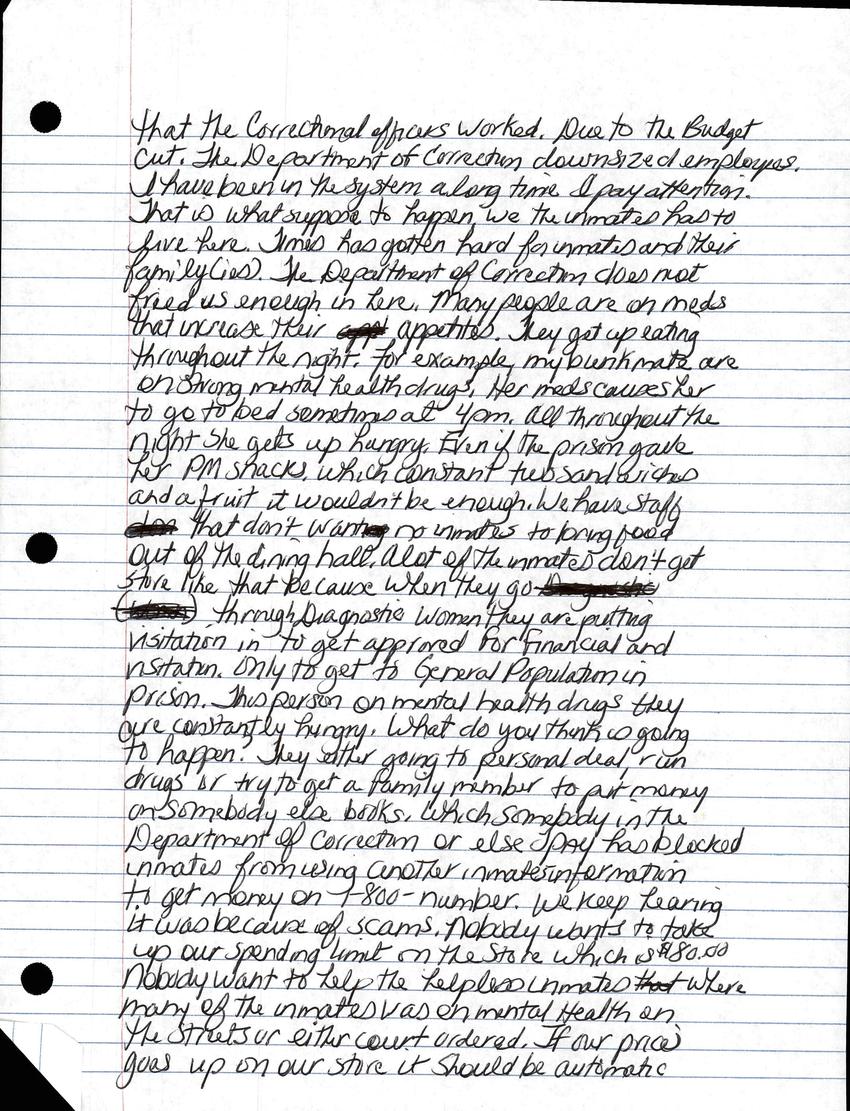 that the Correctional officers worked. Due to the Budget
Cut. The Department of Correction downsized employees.
I have been in the system a long time I pay attention.
That is what suppose to happen, we the inmates has to
live here. Times has gotten hard for inmates and their
family(ies). The Department of Correction does not
freed us enough in here. Many people are on meds
that increase their appetites. They get up eating
throughout the night. For example, my bunkmate are
on strong mental health drugs. Her meds causes her
to go to bed sometimes at 4pm. All throughout the
night she gets up hungry. Even if the prison gave
her PM snacks. Which constant two sandwiches
and a fruit it wouldn't be enough. We have staff
that don't want no inmates to bring food
out of the dining hall. A lot of the inmates don't get
store like that because when they go
through Diagnostic women they are putting
visitation in to get approved for financial and
visitation. Only to get to General Population in
prison. This person on mental health drugs they
are constantly hungry. What do you think is going
to happen? They either going to personal deal, run
drugs or try to get a family member to put money
on somebody else books. Which somebody in the
Department of Correction or else JPAY has blocked
inmates from using another inmates information
to get money on 1-800-number. We keep hearing
it was because of scams. Nobody wants to take
up our spending limit on the store which is $80.00
Nobody want to help the helpless inmates that where
many of the inmates was on mental Health on
the streets or either court ordered. If our prices
goes up on our store it should be automatic